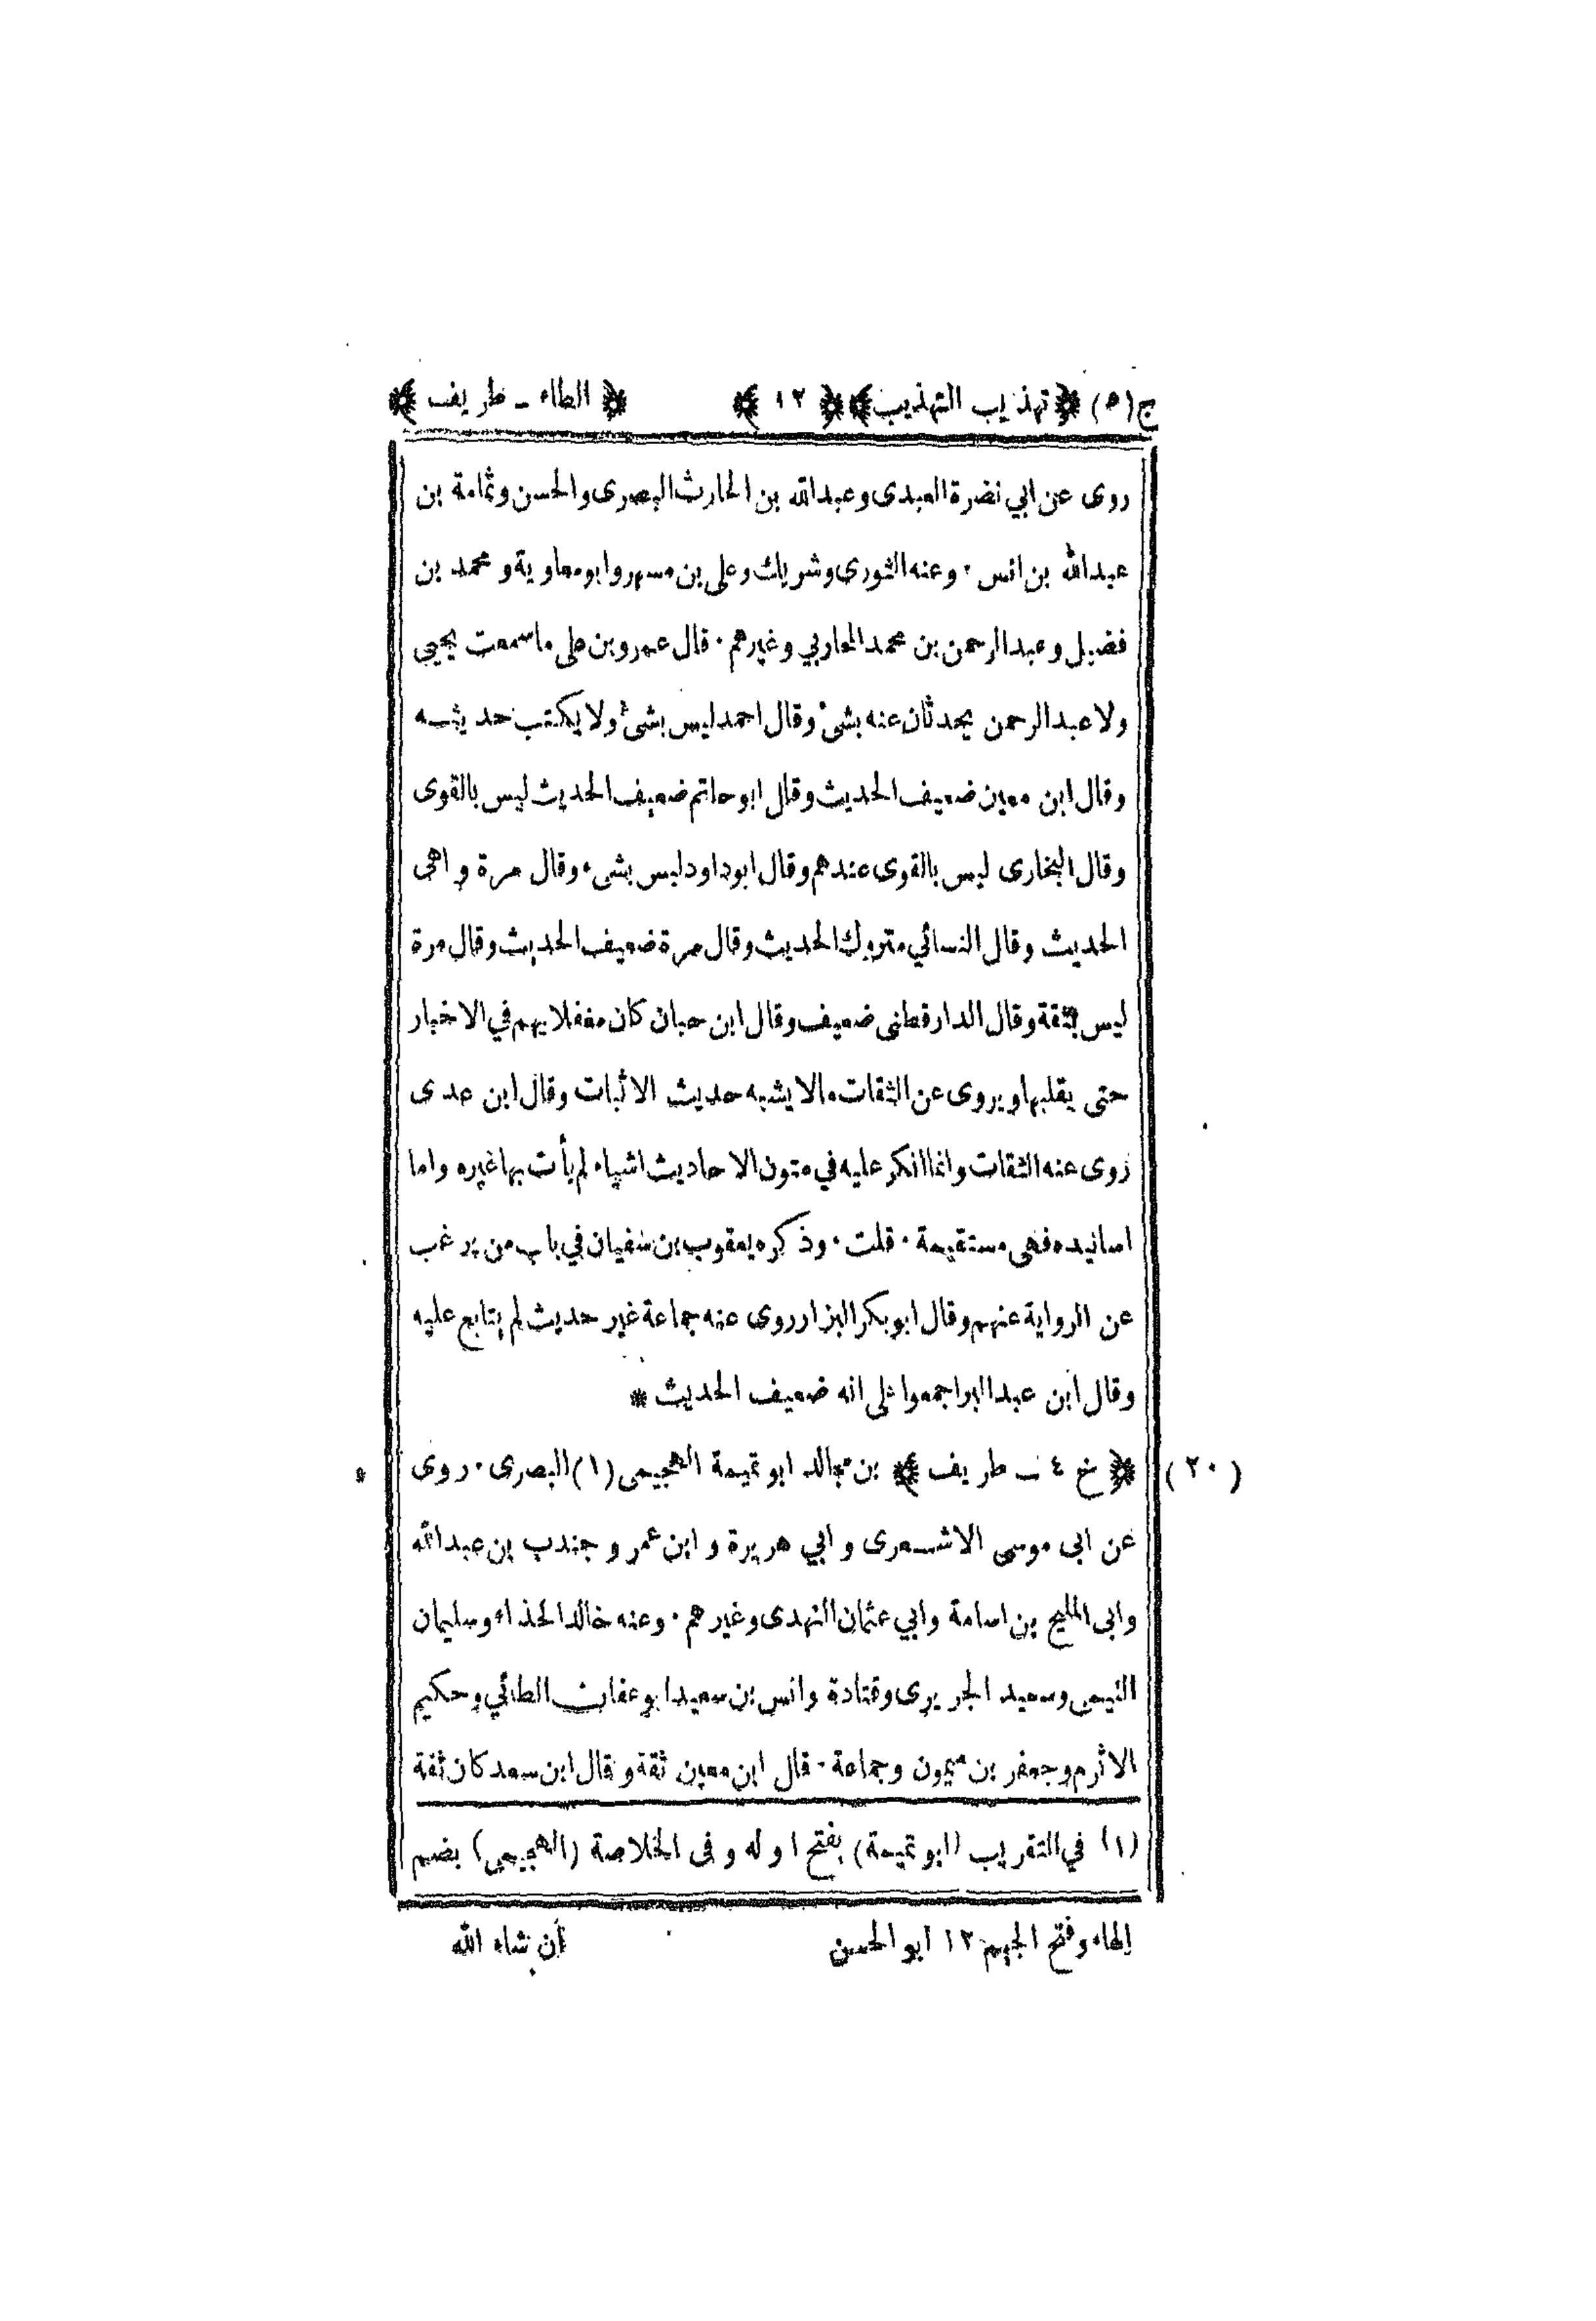 ج(٥) ﴿تهذيب التهذيب﴾ ﴿ ١٢ ﴾ ﴿ الطاء ـ طريف ﴾
روى عن ابي نضرة العبدى وعبدالله بن الحارث البصرى والحسن وثمامة بن
عبدالله بن انس ٠ وعنه الثورى وشريك وعلى بن مسهر وابو معاوية و محمد بن
فضيل وعبدالرحمن بن محمد المحاربي وغيرهم ٠ قال عمرو بن على ماسمعت يحيى
ولا عبدالرحمن يحدثان عنه بشئ وقال احمد ليس بشئ ولا يكتب حديثه
وقال ابن معين ضعيف الحديث وقال ابو حاتم ضعيف الحديث ليس بالقوى
وقال البخارى ليس بالقوى عندهم وقال ابوداود ليس بشىء وقال مرة واهى
الحديث وقال النسائي متروك الحديث وقال مرة ضعيف الحديث وقال مرة
ليس بثقة وقال الدارقطنى ضعيف وقال ابن حبان كان مغفلا يهم في الاخبار
حتى يقلبها ويروى عن الثقات مالا يشبه حديث الاثبات وقال ابن عدى
روى عنه الثقات وانما انكر عليه في متون الاحاديث اشياء لم يأت بها غيره واما
اسانيده فهى مستقيمة ٠ قلت ٠ وذكره يعقوب بن سفيان في باب من يرغب
عن الرواية عنهم وقال ابو بكر البزار روى عنه جماعة غير حديث لم يتابع عليه
وقال ابن عبدالبر اجمعوا على انه ضعيف الحديث *
(٢٠) ﴿ خ ٤ ـ طريف ﴾ بن مجالد ابو تميمة الهجيمى (١) البصرى ٠ روى
عن ابى موسى الاشعرى و ابي هريرة و ابن عمر و جندب بن عبدالله
وابى المليح بن اسامة وابي عثمان النهدى وغيرهم ٠ وعنه خالد الحذاء وسليمان
التيمى وسعيد الجريرى وقتادة وانس بن سعيد ابو عفان الطائي وحكيم
الاثرم وجعفر بن ميمون وجماعة ٠ قال ابن معين ثقة وقال ابن سعد كان ثقة
(١) في التقريب (ابو تميمة) بفتح اوله وفى الخلاصة (الهجيمى) بضم
الهاء وفتح الجيم ١٢ ابو الحسن
ان شاء الله